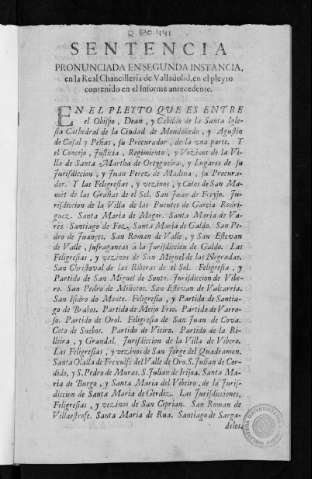 SENTENCIA
PRONUNCIADA EN SEGUNDA INSTANCIA,
en la Real Chancilleria de Valladolid, en el pleyto
contenido en el Informe antecedente.
EN EL PLEYTO QUE ES ENTRE
el Obispo, Dean, y Cabildo de la Santa Igle-
sia Cathedral de la Ciudad de Mondoñedo, y Agustin
de Casal y Peñas, su Procurador, de la una parte. Y
el Concejo, Justicia, Regimiento, y Vezinos de la Vi-
lla de Santa Martha de Ortygueira, y Lugares de su
Jurisdiccion, y Juan Perez de Madona, su Procura-
dor. Y las Feligresias, y vezinos, y Cotos de San Ma-
med de las Grallas de el Sol. San Juan de Freyjo. Ju-
risdiccion de la Villa de las Puentes de Garcia Rodri-
guez. Santa Maria de Mogor. Santa Maria de Va-
res. Santiago de Foz. Santa Maria de Galdo. San Pe-
dro de Juances. San Roman de Valle, y San Estevan
de Valle, sufraganeas à la Jurisdiccion de Galdo. Las
Feligresias, y vezinos de San Miguel de las Negradas.
San Christoval de las Riberas de el Sol. Feligresia, y
Partido de San Miguel de Coure. Jurisdiccion de Vibe-
ro. San Pedro de Miñotos. San Estevan de Valcarria.
San Isidro de Monte. Feligresia, y Partido de Santia-
go de Brabos. Partido de Merjo Frio. Partido de
so. Partido de Orol. Feligresia de San Juan de Cova.
Coto de Suelos. Partido de Viveiro. Partido de la Ri-
beira, y Grandal. Jurisdiccion de la Villa de Vibero.
Las Feligresias, y vezinos de San Jorge del Quadramon.
Santa Olalla de Frexulfe del Valle de Oro. S. Julian de Cer-
dido, y S. Pedro de Muras. S. Julian de Irijoa. Santa Ma-
ria de Burgo, y Santa Maria del Vibeiro, de la Jurisd-
iccion de Santa Maria de Gerdiz. Las Jurisdicciones,
Feligresias, y vezinos de San Ciprian. San Roman de
Villaestrofe. Santa Maria de Rua. Santiago de Sarga-
delos,